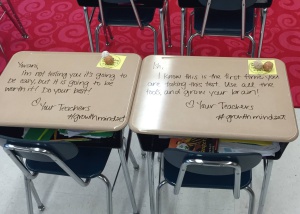 I'm not telling you it's going to
be easy, but it is going to be
worth it! Do your best!
♡ Your Teachers
#growthmindset
I know this is the first time you
are taking this test. Use all the
tools, and grow your brain!
♡ Your Teachers
#growthmindset